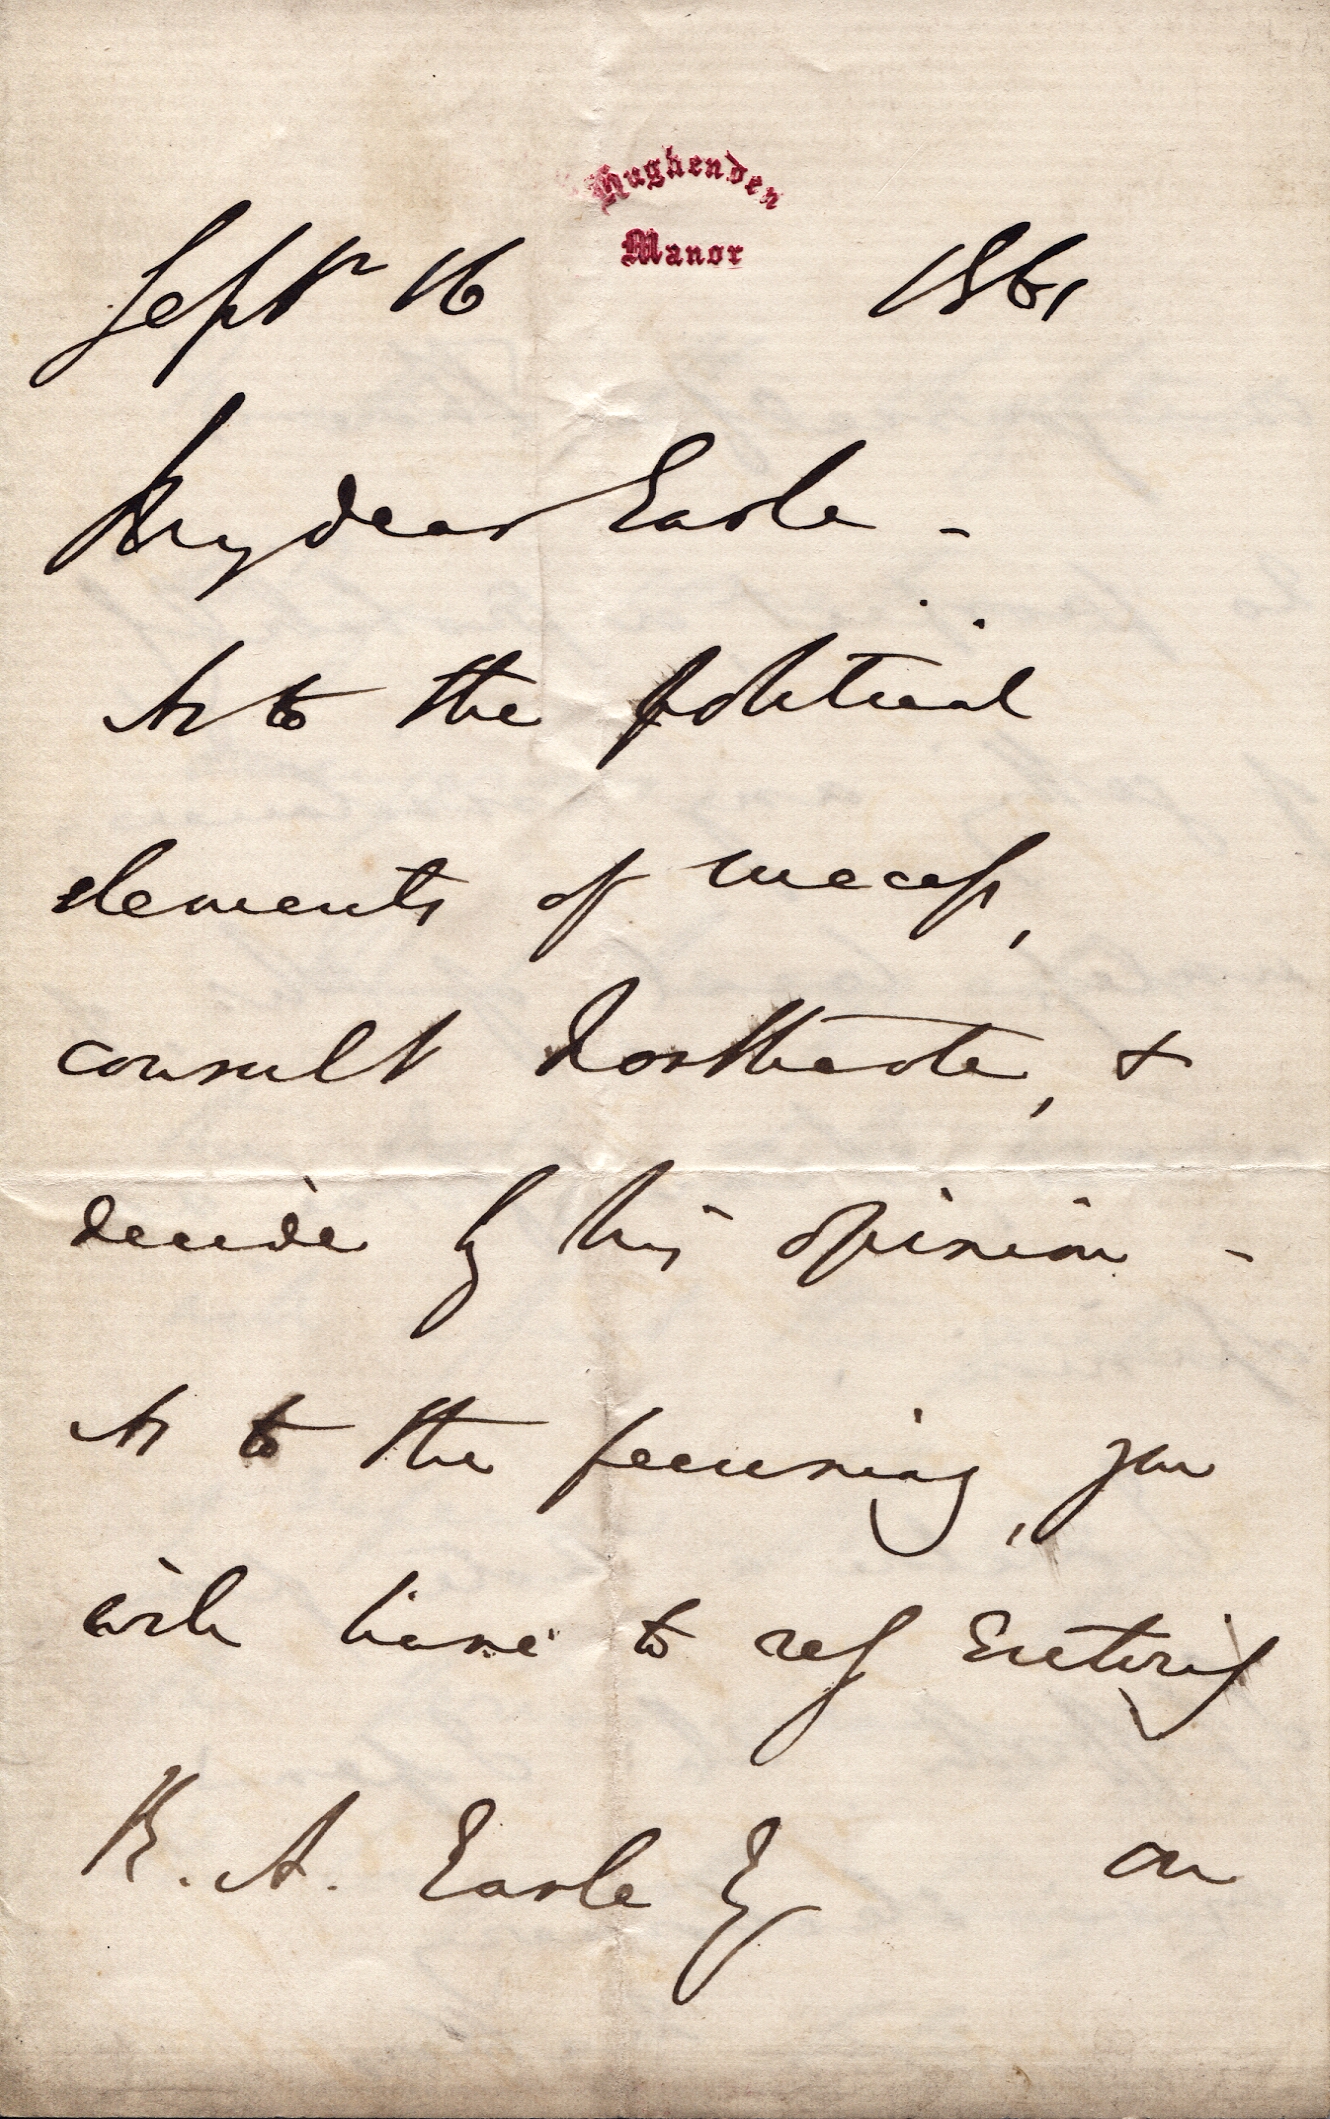 Hughenden
Manor
Septr 16 1861
My dear Earle -
As to the political
elements of success,
consult Northcote, &
decide by his opinion -
As to the pecuniary, you
will have to rely entirely
R. A. Earle Esq on